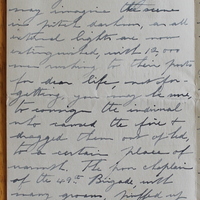 may imagine the scene
in pitch darkness, as all
internal lights are now
extinguished, with 1200
men rushing to their posts
for dear life, not for-
getting, you may be sure,
to consign the individual
who caused the fire &
dragged them out of bed,
to a certain place of
warmth. The poor chaplain
of the 49th Brigade, with
many groans,